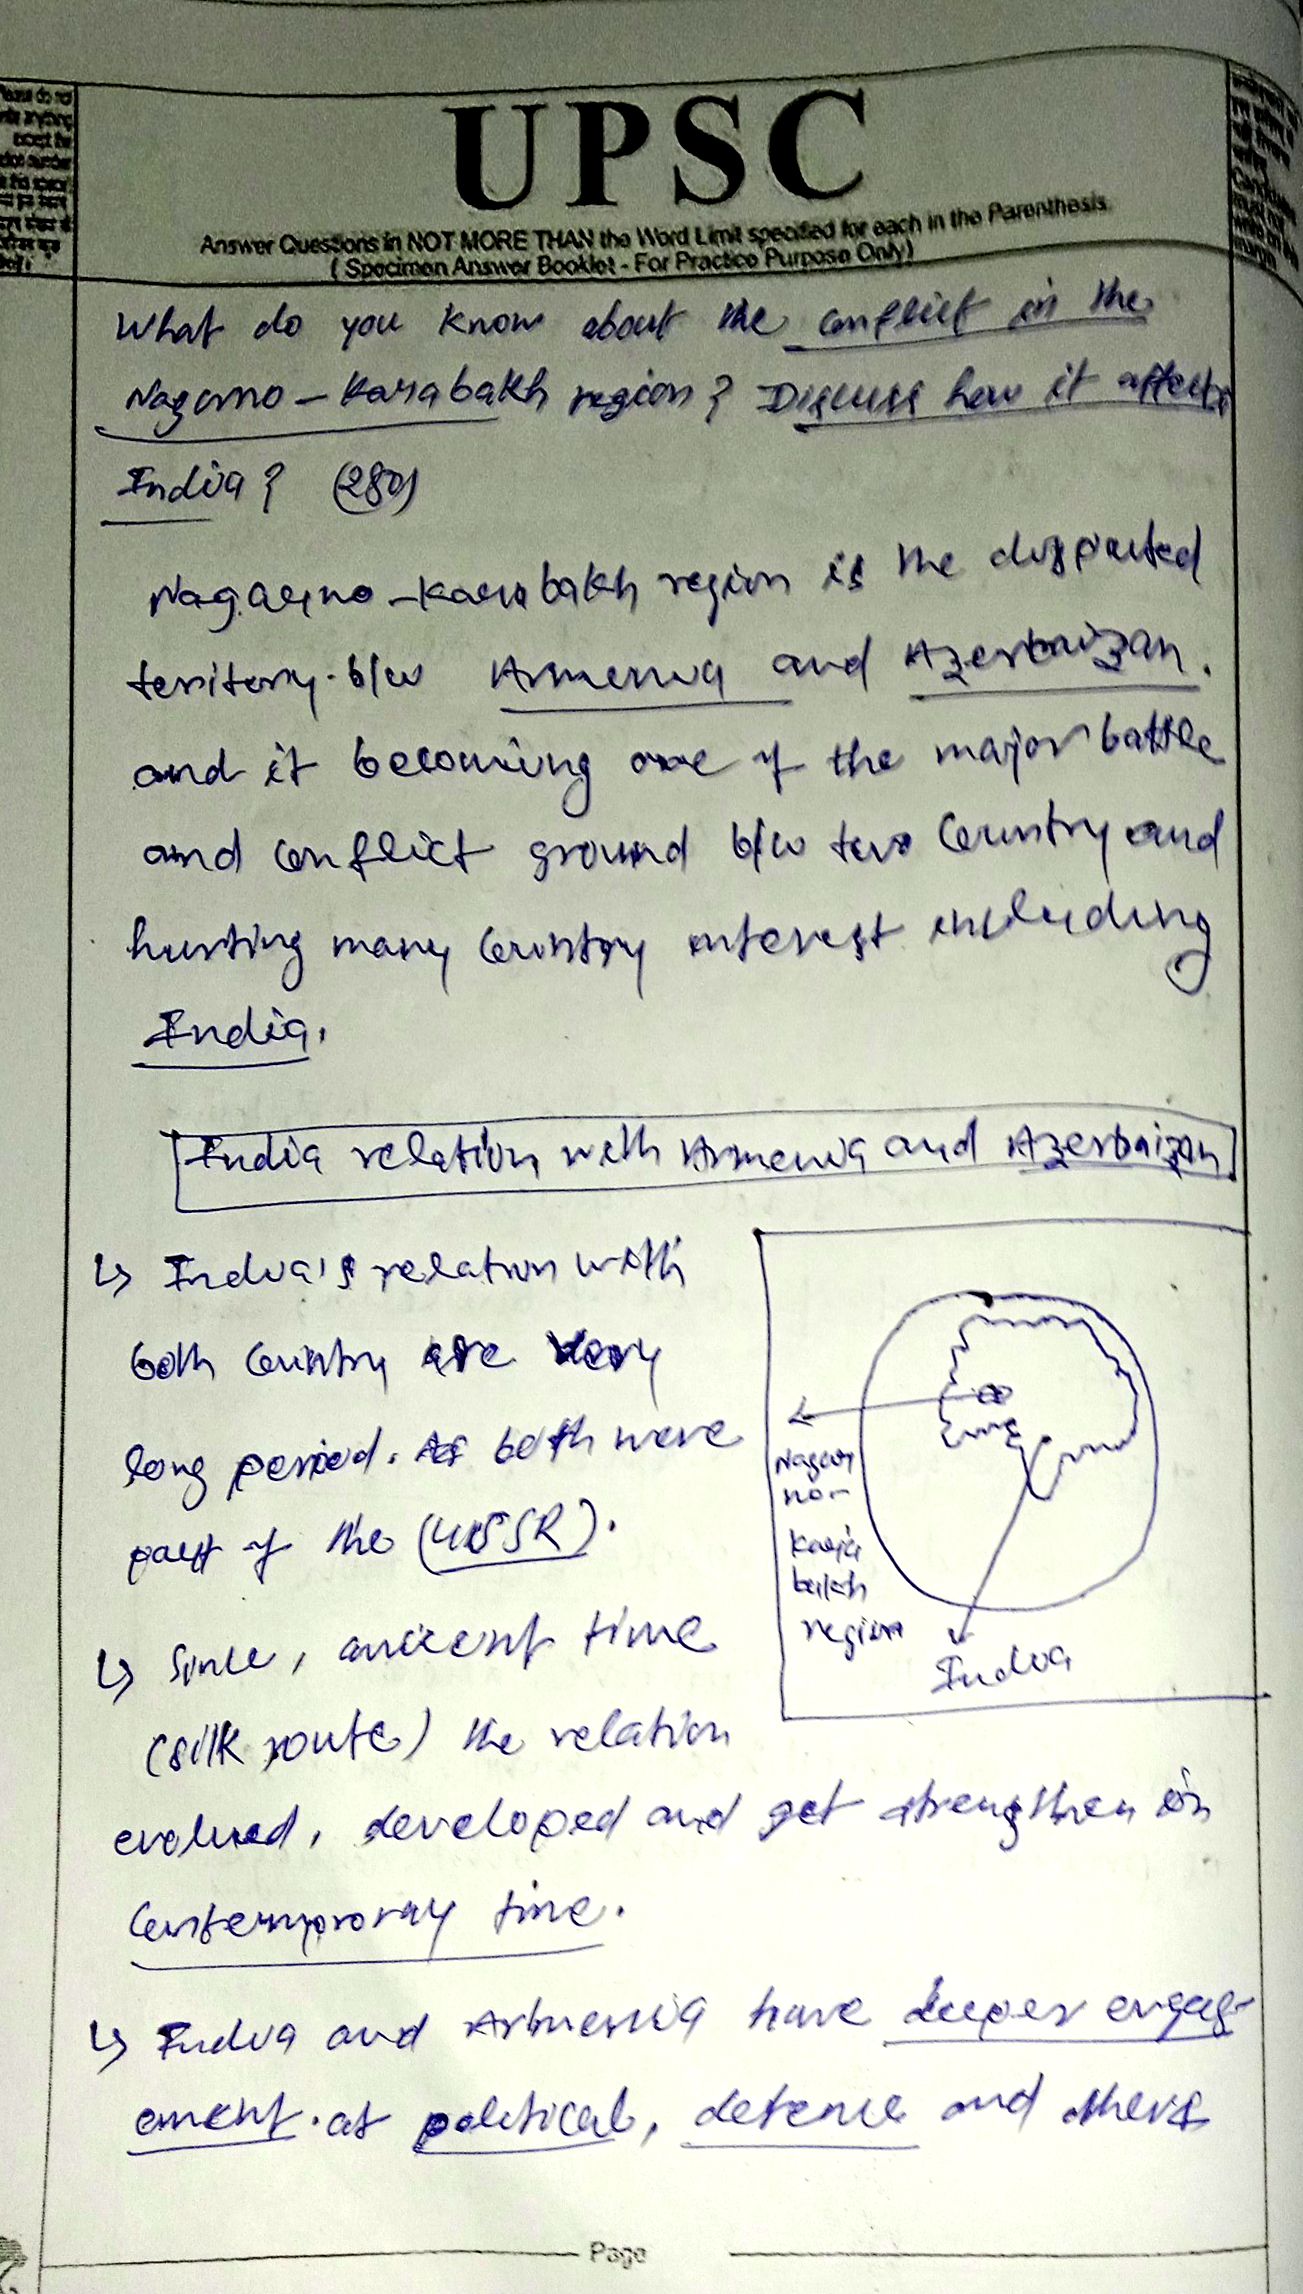 UPSC
Answer Questions in NOT MORE THAN the Word Limit specified for each in the Parenthesis
( Specimen Answer Booklet - For Practice Purpose Only)
What do you know about the conflict in the
Nagorno - Karabakh region? Discuss how it affects
India? (250)
Nagarno - Karabakh region is the disputed
teritory b/w Armenia and Azerbaizan.
and it becoming one of the major battle
and conflict ground b/w two Country and
hurting many Country interest including
India.
India relation with Armenia and Azerbaizan
↳ India's relation with
both Country are very
long period. As both were
part of the (USSR).
↳ Since, ancient time
(silk route) the relation
evolved, developed and get strengthen in
Contemporary time.
↳ India and Armenia have deeper engag-
ement. at political, defence and others
Nagar
no-
Kara
bakh
region
India
Page